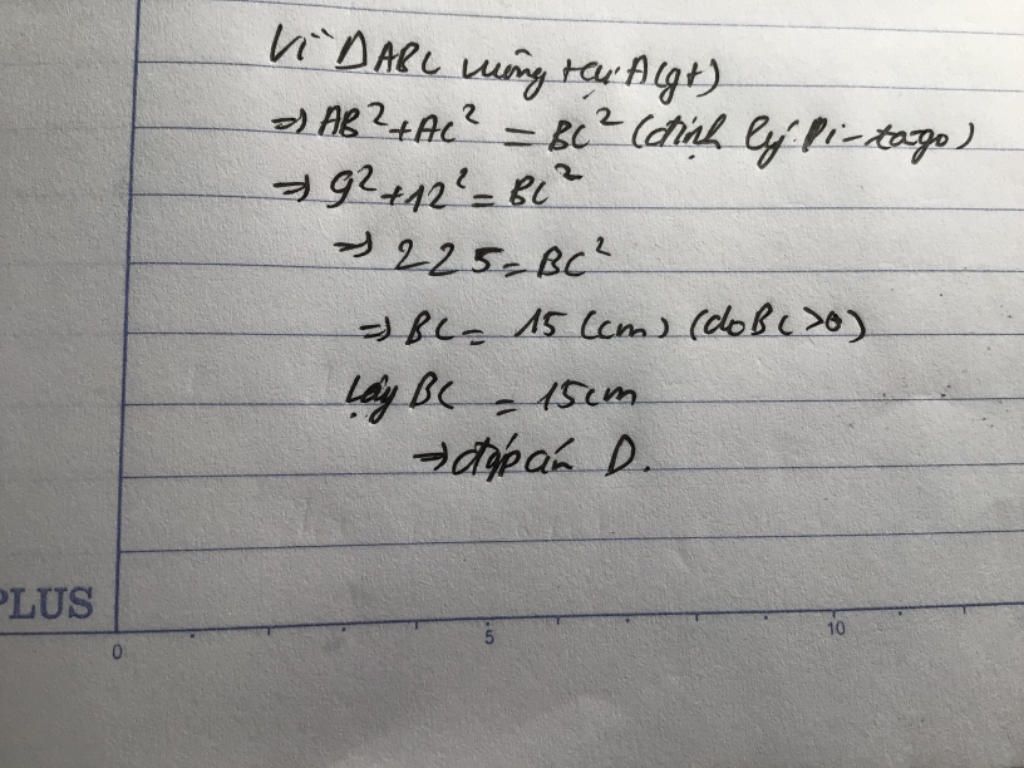 Vì ΔABC vuông tại A (gt)
=> AB² + AC² = BC² (định lý Pi-ta-go)
=> 9² + 12² = BC²
=> 225 = BC²
=> BC = 15 (cm) (do BC > 0)
Lấy BC = 15cm
=> đáp án D.
PLUS
0 5 10